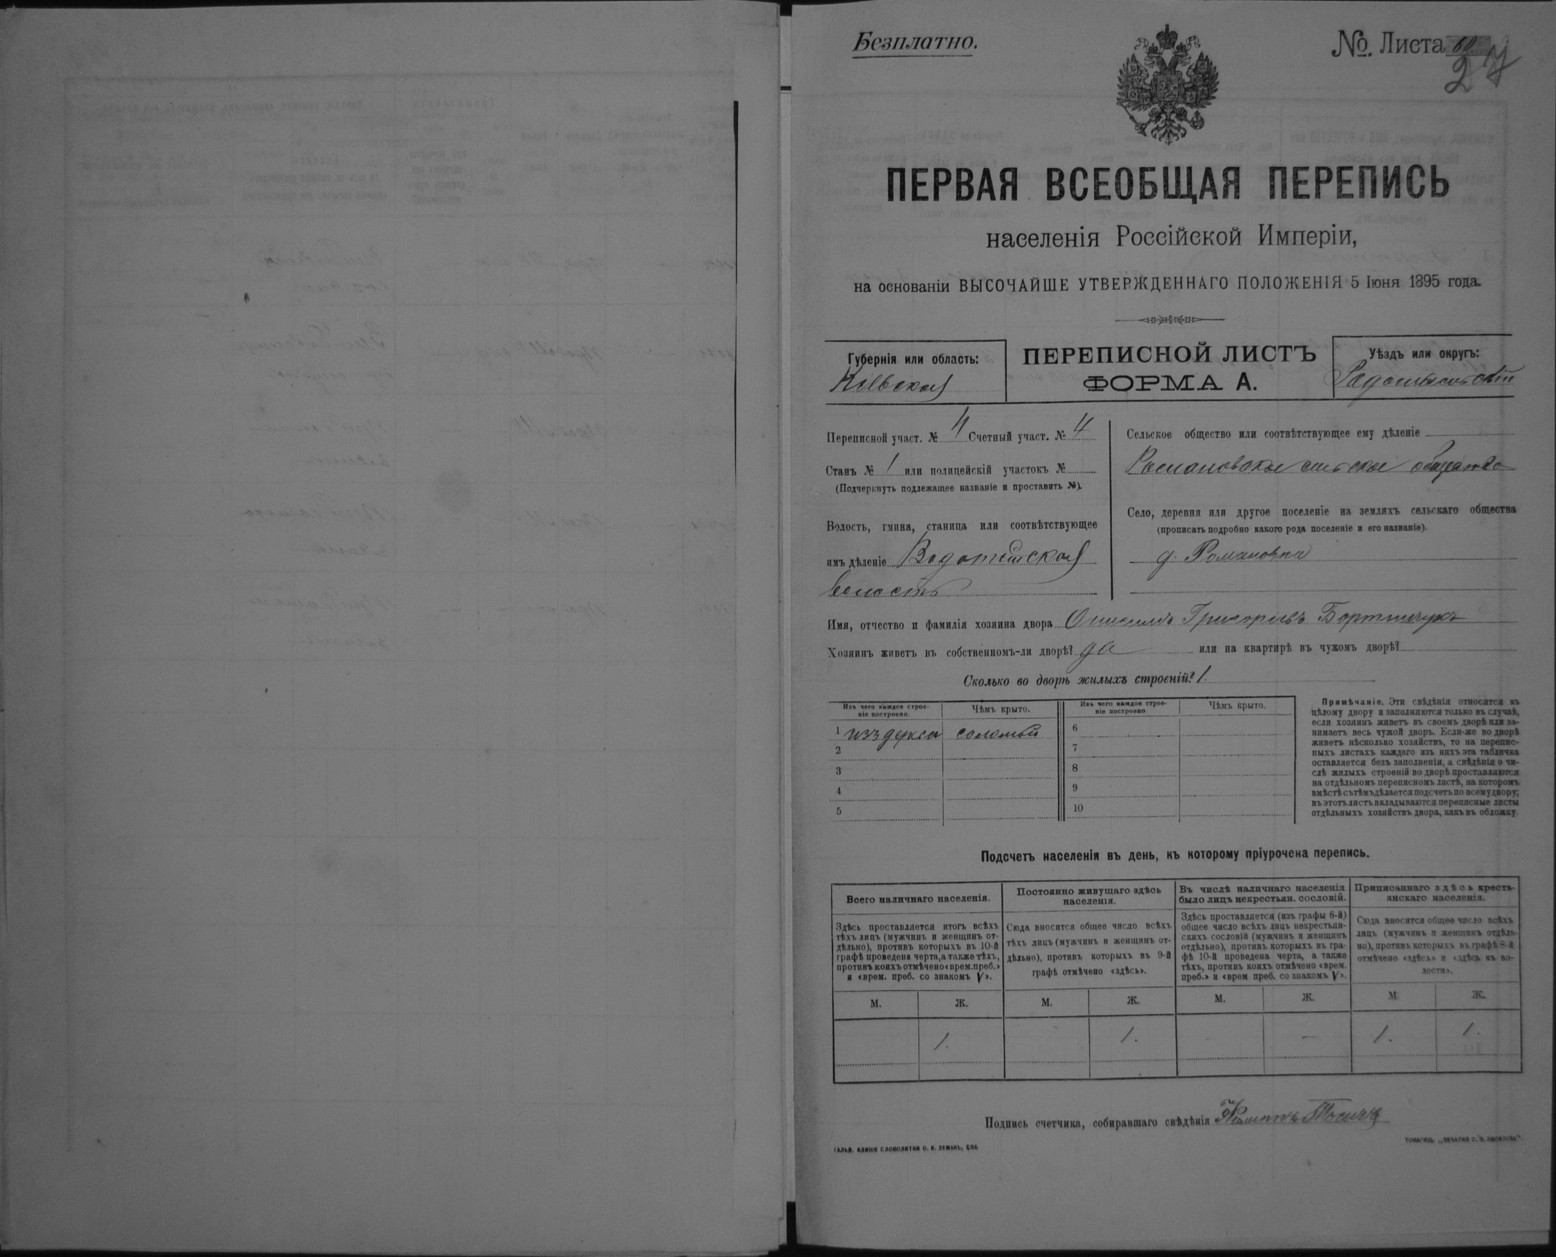 Безплатно.
№. Листа 27
ПЕРВАЯ ВСЕОБЩАЯ ПЕРЕПИСЬ
населенія Россійской Имперіи,
на основаніи ВЫСОЧАЙШЕ УТВЕРЖДЕННАГО ПОЛОЖЕНІЯ 5 Іюня 1895 года.
Губернія или область:
Кіевская
ПЕРЕПИСНОЙ ЛИСТЪ
ФОРМА А.
Уѣздъ или округъ:
Радомысльскій
Переписной участ. № 4 Счетный участ. № 4
Станъ № 1 или полицейскій участокъ №
(Подчеркнуть подлежащее названіе и проставить №).
Волость, гмина, станица или соотвѣтствующее
имъ дѣленіе Водотыйская
волость
Сельское общество или соотвѣтствующее ему дѣленіе
Романовское сельское общество
Село, деревня или другое поселеніе на земляхъ сельскаго общества
(прописать подробно какого рода поселеніе и его названіе).
д. Романовка
Имя, отчество и фамилія хозяина двора Онисимъ Григорьевъ
Хозяинъ живетъ въ собственномъ-ли дворѣ? да или на квартирѣ въ чужомъ дворѣ?
Сколько во дворѣ жилыхъ строеній? 1.
Изъ чего каждое строе-
ніе построено.
Чѣмъ крыто.
Изъ чего каждое строе-
ніе построено
Чѣмъ крыто.
1 изъ дерева соломой
2
3
4
5
6
7
8
9
10
Примѣчаніе. Эти свѣдѣнія относятся къ
цѣлому двору и заполняются только въ случаѣ,
если хозяинъ живетъ въ своемъ дворѣ или за-
нимаетъ весь чужой дворъ. Если-же во дворѣ
живетъ нѣсколько хозяйствъ, то на перепис-
ныхъ листахъ каждаго изъ нихъ эта табличка
оставляется безъ заполненія, а свѣдѣнія о чи-
слѣ жилыхъ строеній во дворѣ проставляются
на отдѣльномъ переписномъ листѣ, на которомъ
вмѣстѣ съ тѣмъ дѣлается подсчетъ по всему двору;
въ этотъ листъ вкладываются переписные листы
отдѣльныхъ хозяйствъ двора, какъ въ обложку.
Подсчетъ населенія въ день, къ которому пріурочена перепись.
Всего наличнаго населенія.
Постоянно живущаго здѣсь
населенія.
Въ числѣ наличнаго населенія
было лицъ некрестьян. сословій.
Приписаннаго здѣсь кресть-
янскаго населенія.
Здѣсь проставляется итогъ всѣхъ
тѣхъ лицъ (мужчинъ и женщинъ от-
дѣльно), противъ которыхъ въ 10-й
графѣ проведена черта, а также тѣхъ,
противъ коихъ отмѣчено «врем. преб.»
и «врем. преб. со знакомъ V».
Сюда вносится общее число всѣхъ
тѣхъ лицъ (мужчинъ и женщинъ от-
дѣльно), противъ которыхъ въ 9-й
графѣ отмѣчено «здѣсь».
Здѣсь проставляется (изъ графы 6-й)
общее число всѣхъ лицъ некрестьян-
скихъ сословій (мужчинъ и женщинъ
отдѣльно), противъ которыхъ въ гра-
фѣ 10-й проведена черта, а также
тѣхъ, противъ коихъ отмѣчено «врем.
преб.» и «врем. преб. со знакомъ V».
Сюда вносится общее число всѣхъ
лицъ (мужчинъ и женщинъ отдѣль-
но), противъ которыхъ въ графѣ 8-й
отмѣчено «здѣсь» и «здѣсь въ во-
лости».
М. Ж. М. Ж. М. Ж. М. Ж.
1. 1. - - 1. 1.
Подпись счетчика, собиравшаго свѣдѣнія